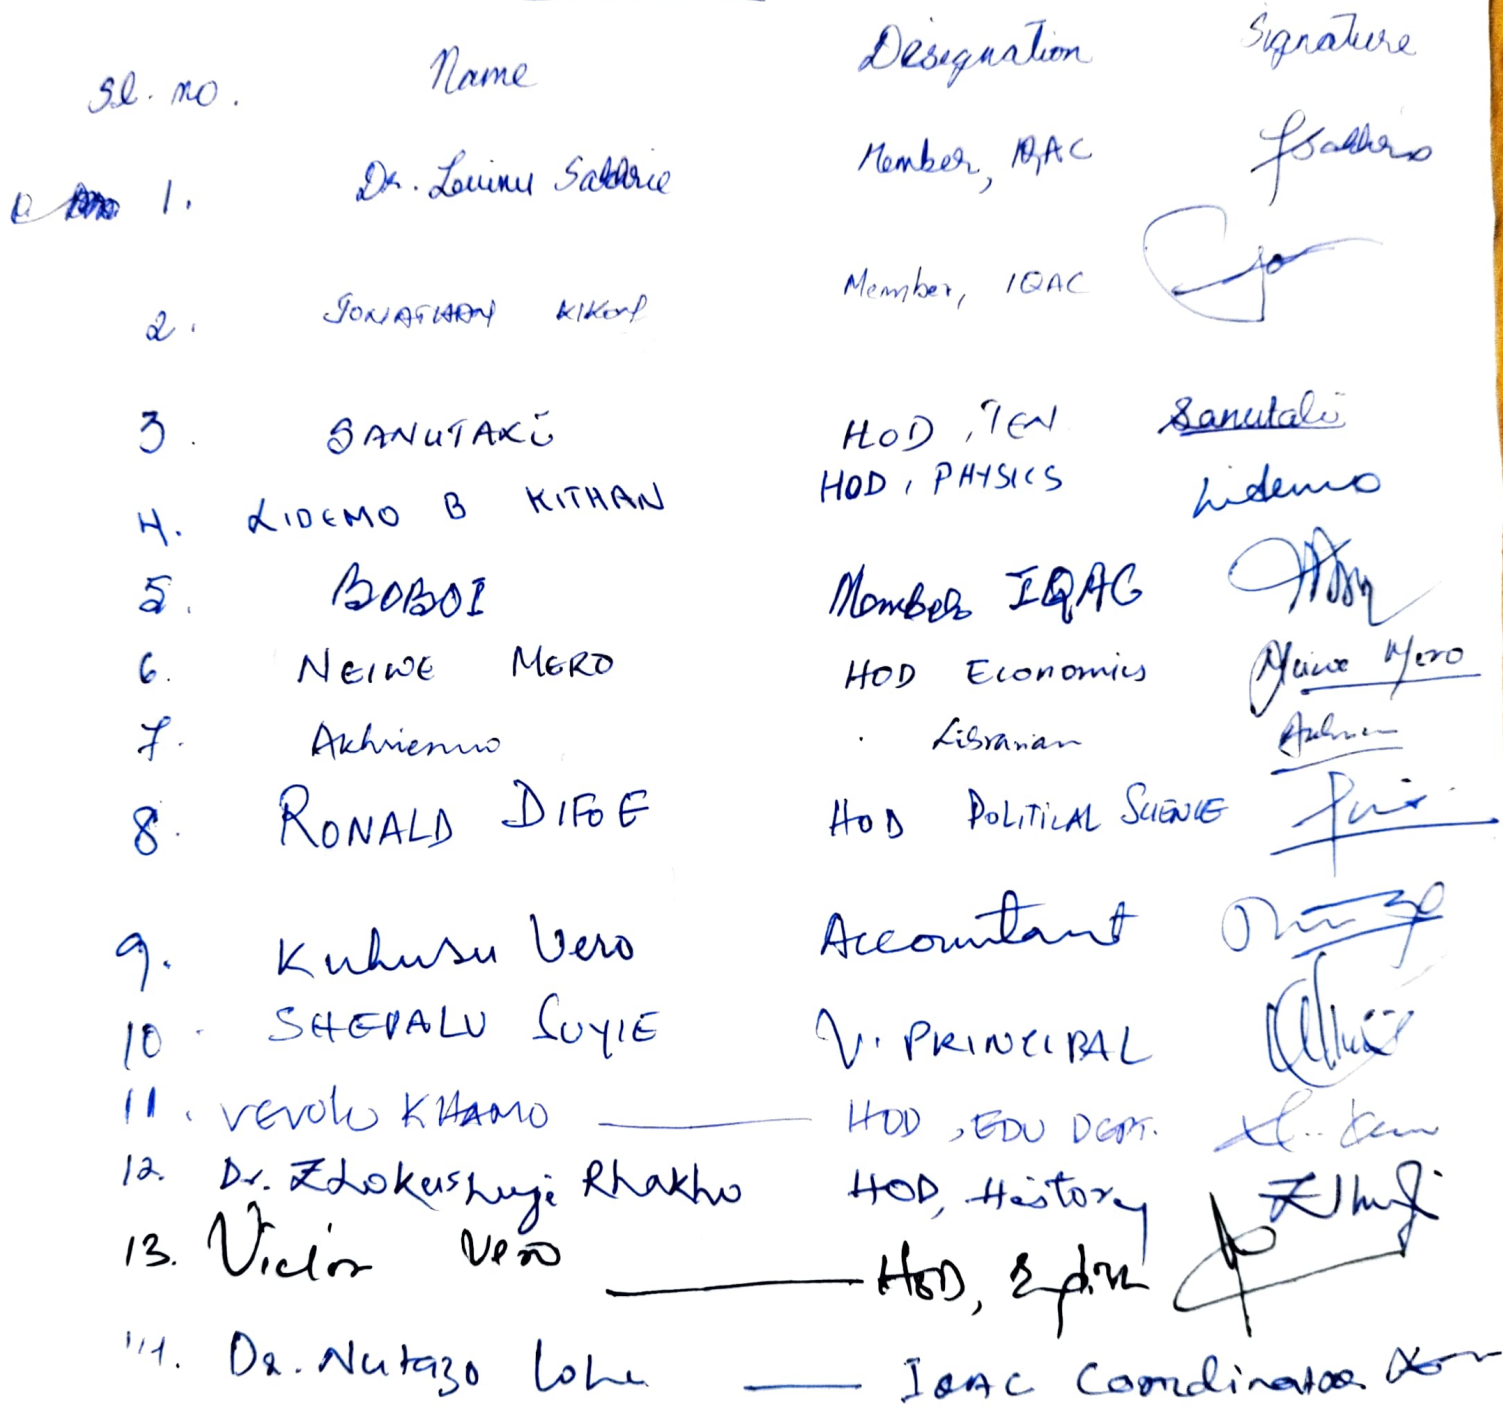 Sl. no. Name Designation Signature
1. Dr. Member, IQAC
2. JONATHAN Member, IQAC
3. SANUTALÜ HOD, TEN Sanutalü
4. LIDEMO B KITHAN HOD, PHYSICS Lidemo
5. BOBOI Member IQAC
6. NEIWE MERO HOD Economics Neiwe Mero
7. Akhrienuo Librarian
8. RONALD DIFOE HOD POLITICAL SCIENCE
9. Kuhusu Vero Accountant
10. SHEVALU SUYIE V. PRINCIPAL
11. VEVOLU KHAMO — HOD, EDU DEPT.
12. Dr. Zhokusheyi Rhakho HOD, History
13. Victor Vero — HOD,
14. Dr. Nutazo Lohe — IQAC Coordinator